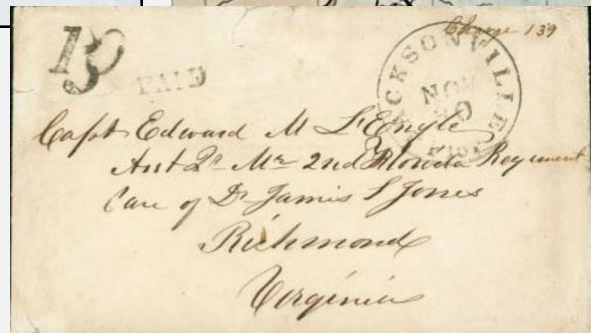 Charge 139
10
PAID
JACKSONVILLE
NOV
Capt Edward M L'Engle
Asst Qr Mr 2nd Florida Regiment
Care of Dr James S Jones
Richmond
Virginia